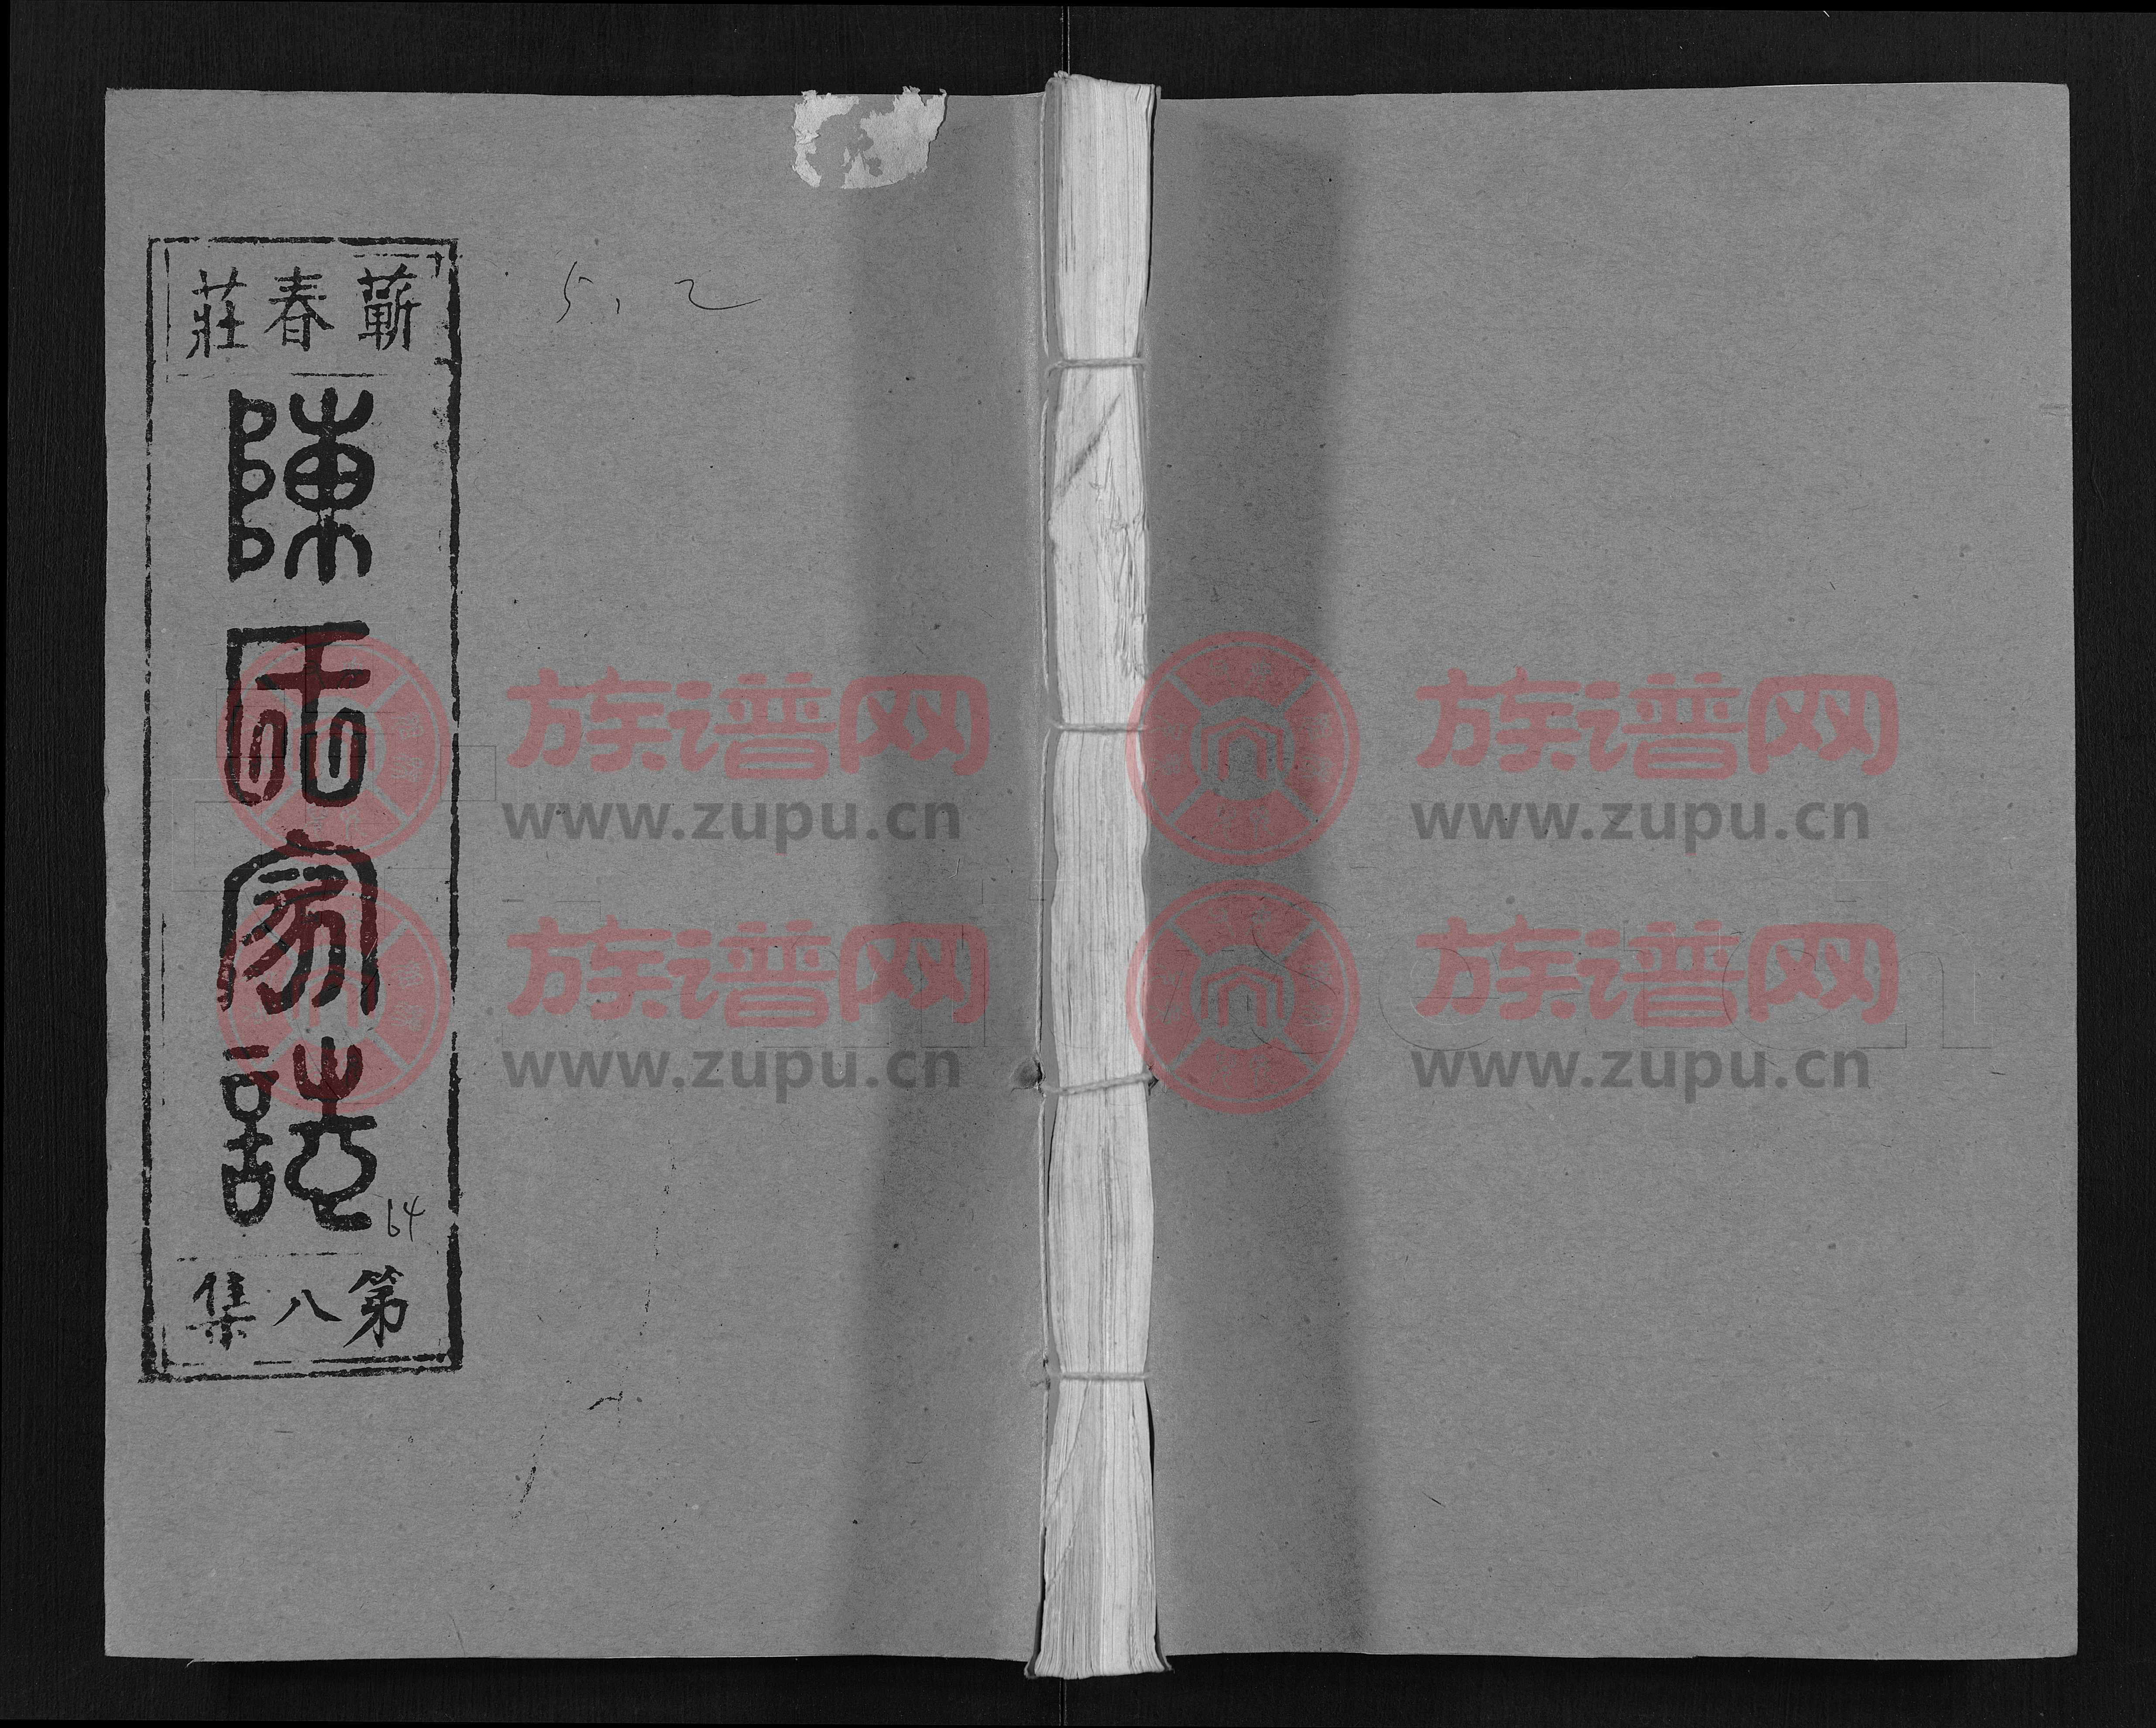 蘄春莊
陳氏家誌
64
第八集
5, 2
族谱网
www.zupu.cn
族谱网
www.zupu.cn
族谱网
www.zupu.cn
族谱网
www.zupu.cn